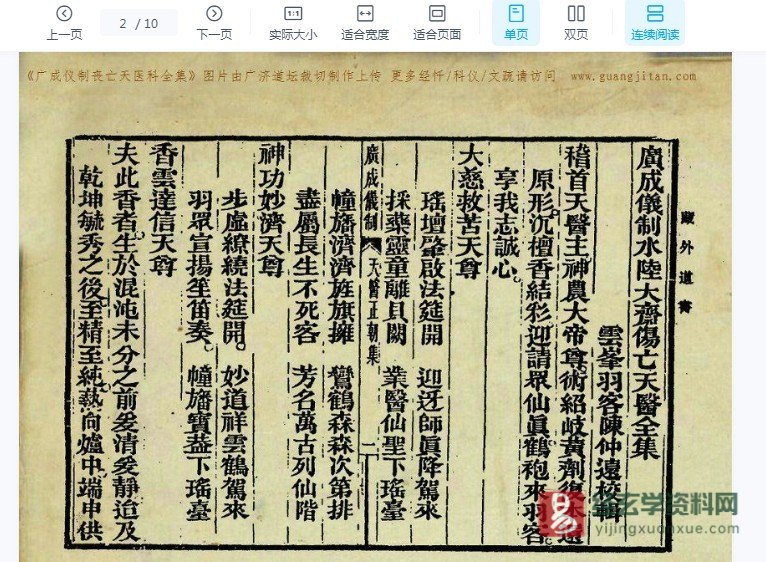 上一页
2 / 10
下一页
1:1
实际大小
适合宽度
适合页面
单页
双页
连续阅读
《广成仪制丧亡天医科全集》图片由广济道坛裁切制作上传 更多经忏/科仪/文疏请访问 www.guangjitan.com
藏外道書
廣成儀制水陸大齋傷亡天醫全集
雲峯羽客陳仲遠校輯
稽首天醫主神農大帝尊術紹岐黃劑
原形沉檀香結彩迎請眾仙眞鶴袍來羽客
享我志誠心
大慈救苦天尊
瑤壇肇啟法筵開 迎迓師眞降駕來
採藥靈童離貝闕 業醫仙聖下瑤臺
廣成儀制 天醫正朝集 二
幢旛濟濟旌旗擁 鸞鶴森森次第排
盡屬長生不死客 芳名萬古列仙階
神功妙濟天尊
步虛繚繞法筵開 妙道祥雲鶴駕來
羽眾宣揚笙笛奏 幢旛寶蓋下瑤臺
香雲達信天尊
夫此香者生於混沌未分之前爰清爰靜迨及
乾坤毓秀之後至精至純爇向爐中端申供
易
玄学资料网
yijingxuanxue.com